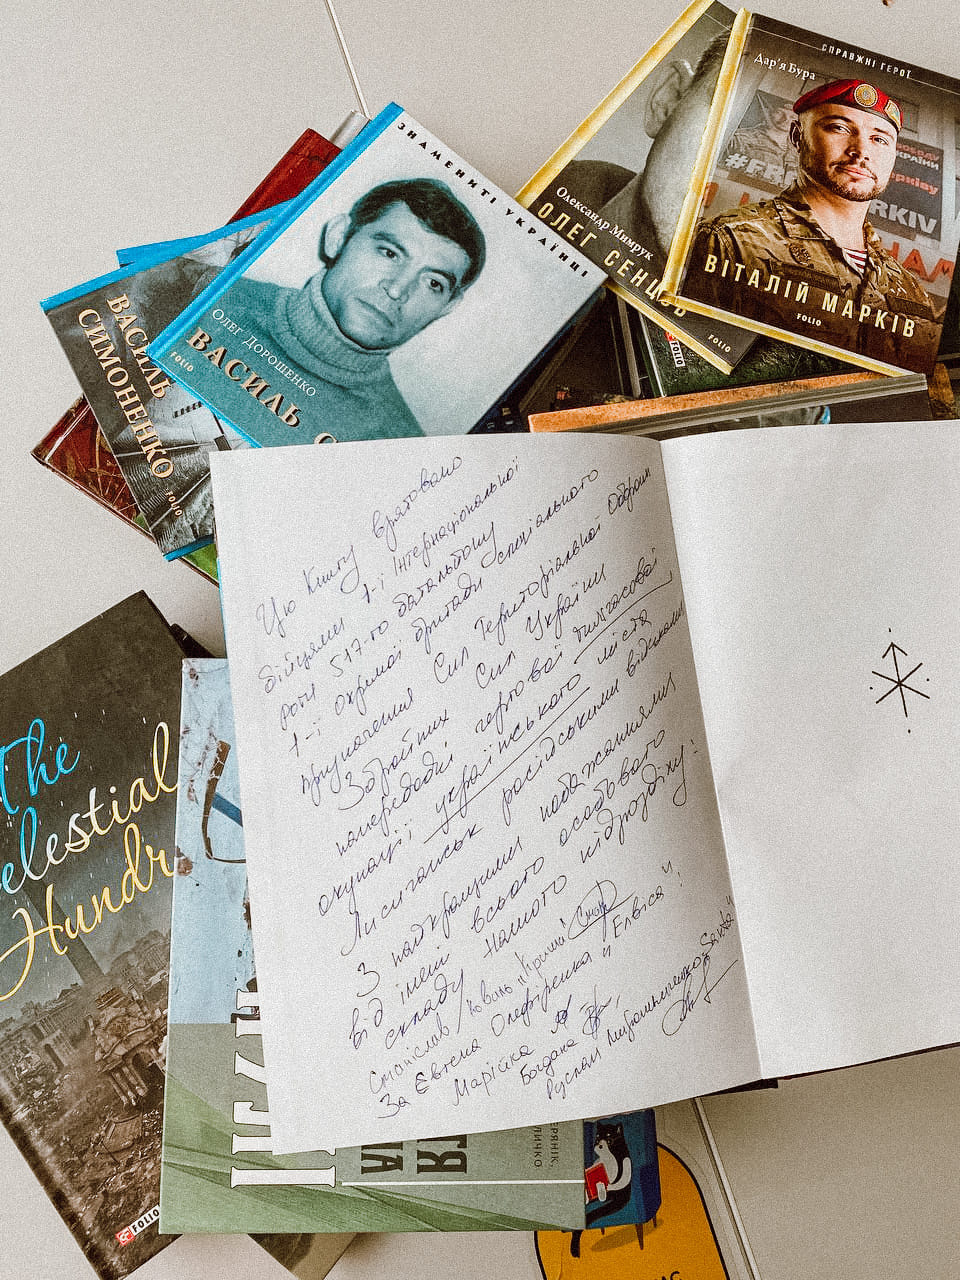 СПРАВЖНІ ГЕРОЇ
Дар'я Бура
ВІТАЛІЙ МАРКІВ
FOLIO
Олександр Мимрук
ОЛЕГ
СЕНЦОВ
FOLIO
ЗНАМЕНИТІ УКРАЇНЦІ
ОЛЕГ ДОРОШЕНКО
ВАСИЛЬ
FOLIO
ВАСИЛЬ
СИМОНЕНКО
FOLIO
Цю книгу врятовано
бійцями 1-ї Інтернаціональної
роти 517-го батальйону
1-ї окремої бригади спеціального
призначення Сил Територіальної Оборони
Збройних Сил України
напередодні чергової тимчасової
окупації українського міста
Лисичанськ російськими військами
З найкращими побажаннями
від імені всього особового
складу нашого підрозділу:
Станіслав Коваль "Кріпиш"
За Євгена Олефіренка "Елвіса"!
Марійка
Богдана
Руслан Мирошниченко "Santa"
The
Celestial
Hundr
FOLIO
ЛИЧКО